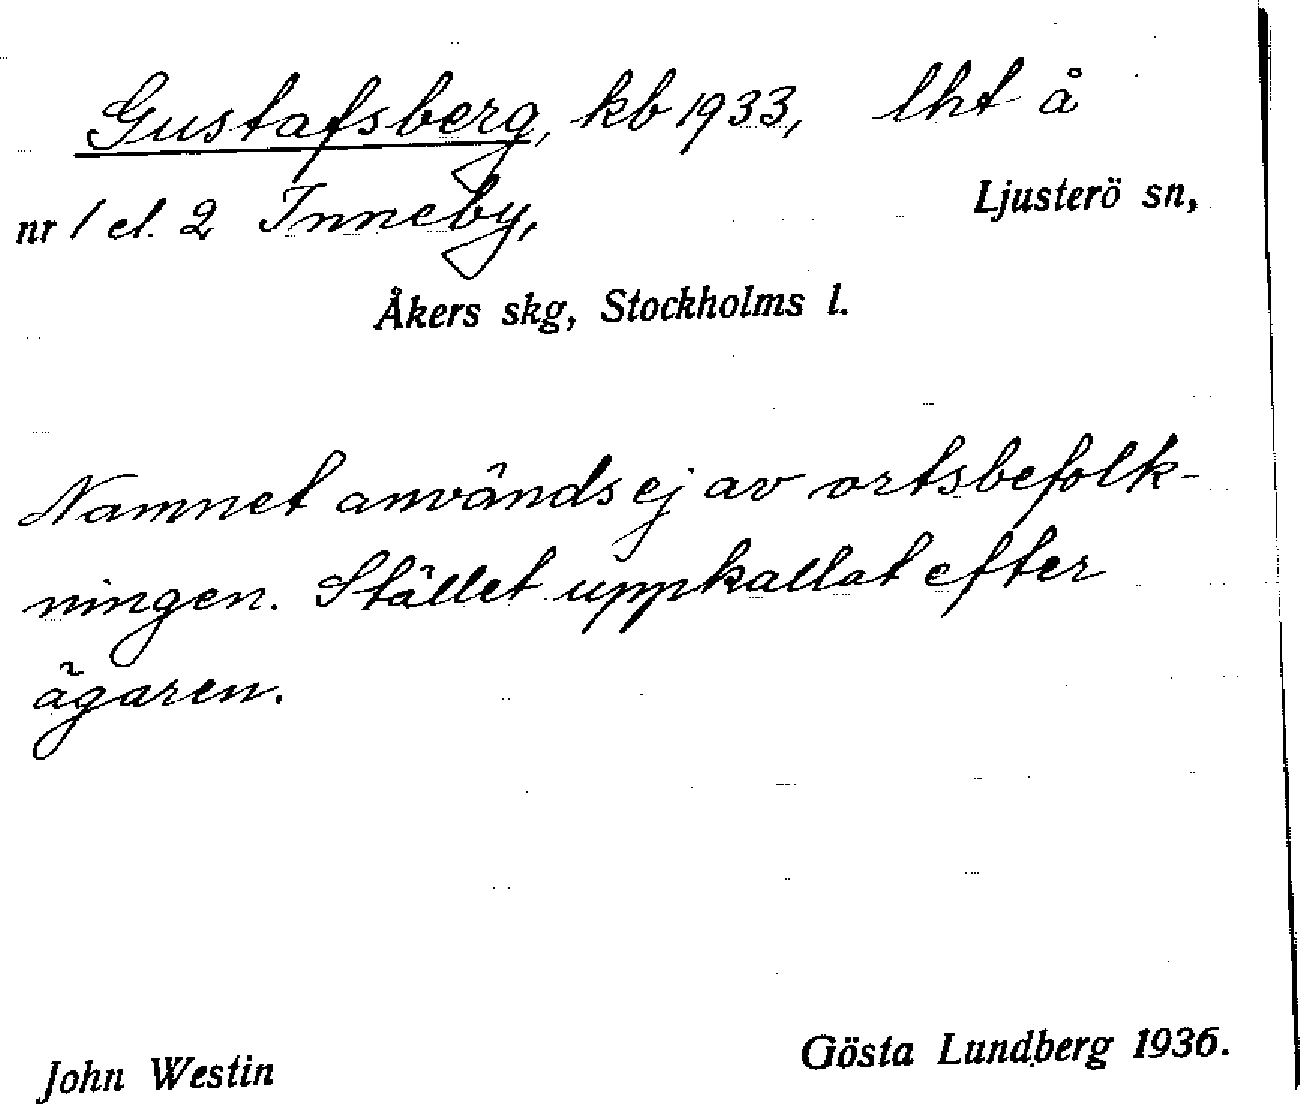 Gustafsberg, kb 1933, lht å
nr 1 el. 2 Inneby, Ljusterö sn,
Åkers skg, Stockholms l.
Namnet används ej av ortsbefolk-
ningen. Stället uppkallat efter
ägaren.
John Westin Gösta Lundberg 1936.